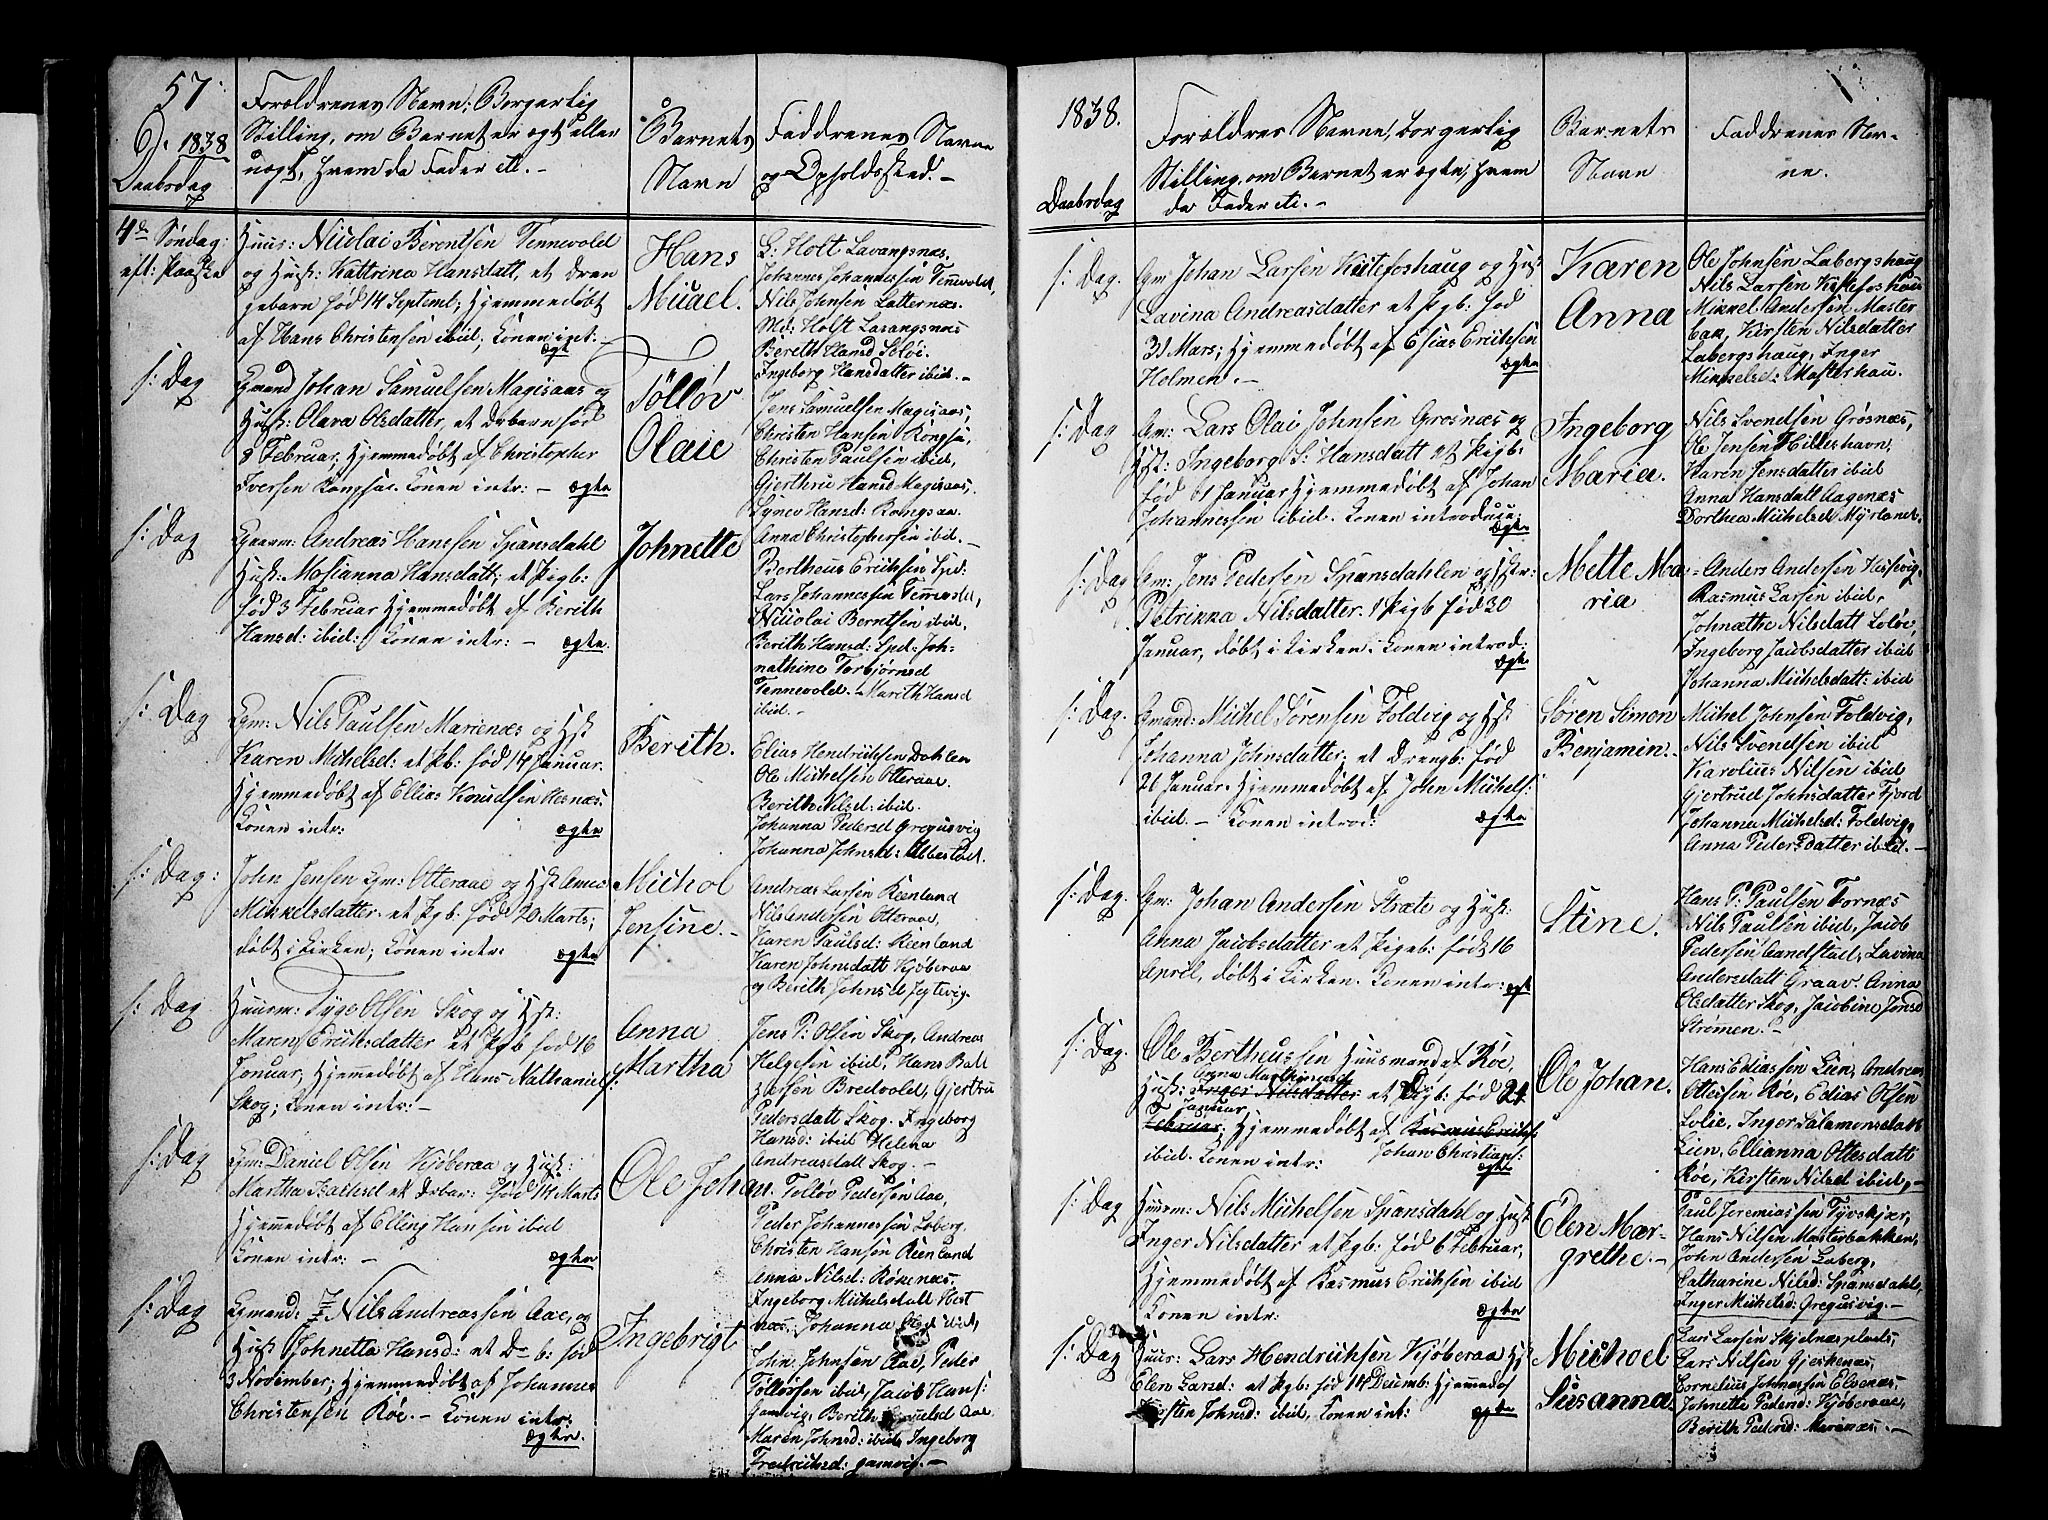 57.
D. 1838
Daabsdag
Forældrenes Navn; Borgerlig
Stilling, om Barnet er ægt eller
uægt, hvem da Fader etc. –
Barnets
Navn
Faddrenes Navne
og Opholdssted. –
4de Søndag:
eft: Paaske
Huus: Nicolai Berentsen Tennevold
og Hust: Kattrina Hansdatt, et Dren
gebarn fød 14 Septembl; Hjemmedøbt
af Hans Christensen ibid; Konen int: –
ægte
Hans
Micael.
L: Holt Lavangsnæs,
Johannes Johannessen Tennevold,
Nils Johnsen Latternæs.
Md: Holst Lavangsnæs
Berith Hansd Soløi.
Ingeborg Hansdatter ibid. –
s: Dag
Gmand Johan Samuelsen Magisaas og
Hust: Olava Olsdatter, et Drbarn fød
8 Februar, Hjemmedøbt af Christopher
Iversen Rongsaa. Konen intr: – ægte
Tølløv
Olaie
Jens Samuelsen Magisaas,
Christen Hansen Rongsa,
Christen Paulsen ibid,
Gjerthru Hansd Magisaas.
Synev Hansd: Rongsaa.
Anna Christophersen ibid. –
s: Dag
Gaarm: Andreas Hanssen Spansdahl
Hust: Mosianna Hansdatt; et Pigb:
fød 3 Februar Hjemmedøbt af Berith
Hansd: ibid: Konen intr: – ægte.
Johnette
Bertheus Erichsen Spd:
Lars Johannessen Tennevold,
Nicolai Berntsen ibid,
Berith Hansd: Spd: Joh-
nathine Torbjørnsd
Tennevold. Marith Hansd
ibid. –
s: Dag
Gm: Nils Paulsen Marienæs og Hst
Karen Michelsd: et Pb: fød 14 Januar.
Hjemmedøbt af Ellias Knudsen Hesnæs.
Konen intr: ægte
Berith.
Elias Hendrichsen Dahlen
Ole Michelsen Otteraae.
Berith Nilsd: ibid.
Johanna Pedersd Gregusvig
Johanna Johnsd: Olbestad.
s: Dag:
John Jensen Gm: Otteraae og Hst
Mikkelsdatter et Pgb: fød 20 Marts;
døbt i Kirken; Konen intr: ægte
Michol
Jensine. –
Andreas Larsen Reenland
Nils Andersen Otteraa,
Karen Paulsd: Reenland
Karen Johnsdatt Kjøberaa
og Berith Johnsd Jegtevig.
s: Dag
Huusm: Tyge Olsen Skog og Hst:
Maren Erichsdatter et Pigb fød 16
Januar; Hjemmedøbt af Hans Nathaniels:
Skog; Konen intr: –
Anna
Martha
Jens P: Olsen Skog, Andreas
Helgesen ibid, Hans Balt
zarsen Bredvold, Gjertru
Pedersdatt Skog. Ingeborg
Hansd: ibid Helena
Andreasdatt Skog. –
s: Dag
Gm: Daniel Olsen Kjøberaa og Hust:
Martha Isachsd et Drbar: fød 14 Marts
Hjemmedøbt af Elling Hansen ibid
Konen intr: – ægte
Ole Johan.
Tølløv Pedersen Aae,
Peder Johannessen Loberg.
Christen Hansen Reenland
Anna Nilsd: Røkenæs.
Ingeborg Michelsdatt Hest
næs. Johanna Olsd ibid,
s: Dag
Gmand: Nils Andreassen Aae, og
Hust Johnetta Hansd: et D b: fød
3 November; Hjemmedøbt af Johannes
Christensen Røe. – Konen intr:
ægte.
Ingebrigt
John Johnsen Aae, Peder
Tølløvsen ibid, Jacob Hans:
Gamvig. Berith Samuelsd Aae
Maren Johnsd: ibid, Ingeborg
Fredrichsd: gamvig. –
1838.
Daabsdag
Forældres Navne, borgerlig
Stilling, om Barnet er ægte, hvem
da Fader etc. –
Barnets
Navn
Faddrenes Nav-
ne.
s: Dag.
Gm Johan Larsen Kistefoshaug og Hust
Lavina Andreasdatter et Pgb: fød
31 Mars; Hjemmedøbt af Esias Erichsen
Holmen. – ægte
Karen
Anna
Ole Johnsen Labergshaug
Nils Larsen Kistefoshau
Mikkel Andersen Master
bak, Kirsten Nilsdatter
Labergshaug, Inger
Mikkelsd: Masterbak.
s: Dag
Gm: Lars Olai Johnsen Grosnæs og
Hst: Ingeborg S: Hansdatt et Pigb:
fød 1 Januar Hjemmedøbt af Johan
Johannessen ibid. Konen introduce:
ægte
Ingeborg
Maria.
Nils Svendsen Grøsnæs,
Ole Jensen Hilleshavn,
Karen Jensdatter ibid
Anna Hansdatt Aagenæs
Dorthea Michelsd Myrland.
s: Dag
Gm: Jens Pedersen Spansdahlen og Hstr:
Petrikka Nilsdatter. 1 Pigb fød 30
Januar, døbt i Kirken. Konen introd:
ægte
Mette Ma
ria
= Anders Andersen Hessevig,
Rasmus Larsen ibid,
Johnæthe Nilsdatt Soløe,
Ingeborg Jacobsdatter ibid
Johanna Michelsdatt: ibid
s: Dag.
Gmand: Michel Sørensen Foldvig og Hst:
Johanna Johnsdatter, et Drengb: fød
26 Januar. Hjemmedøbt af John Michels:
ibid. – Konen introd: ægte
Søren Simon
Benjamin. –
Michel Johnsen Foldvig,
Nils Svendsen ibid
Karolius Nilsen ibid
Gjertrud Johnsdatter Fjord
Johanna Michelsd: Foldvig,
Anna Pedersdatter ibid. –
s: Dag
Gm: Johan Andersen Stræte og Hust:
Anna Jacobsdatter et Pigeb: født 16
April, døbt i Kirken. Konen intr: ægt
Stine.
Hans P: Paulsen Fornæs
Nils Paulsen ibid, Jacob
Pedersen Sandstad, Lavina
Andersdatt Graav. Anna
Olsdatter Skog, Jacobine Jonsd
Strømen. –
s: Dag.
Ole Bertheussen Huusmand et Røe,
Anna Marthe
Hust: Inger Nilsdatter et Drgb: fød 24
Januar
Februar; Hjemmedøbt af Rasmus Erichs:
ibid. Konen intr: Johan Christians:
ægte
Ole Johan.
Hans Edisssen Lien, Andreas
Ottesen Røe, Edias Olsen
Solie, Inger Salamonsdatt
Lien, Ellianna Ottesdatt
Røe, Kirsten Nilsd ibid, –
s: Dag
Huusm: Nils Michelsen Spansdahl og Hust
Inger Nilsdatter et Pgb: fød 6 Februar,
Hjemmedøbt af Rasmus Erichsen ibid
Konen intr: ægte
Elen Mar-
grethe. –
Paul Jeremiassen Tyvskjær,
Hans Nilsen Masterbakken,
John Andersen Laberg,
Catharine Nilsd: Spansdahl,
Inger Michelsd: Gregusvig. –
s: Dag
Huus: Lars Hendrichsen Kjøberaa Hs
Elen Larsd: et Pgb: fød 14 Decemb: Hjemmedøb
Kirsten Johnsd: ibid, Konen int: ægte
Michoel
Susanna.
Lars Larsen Skjelnæsplads,
Lars Nilsen Gjeskenæs,
Cornelius Johnassen Elvenæs,
Johnette Pedersd: Kjøberaae,
Berith Pedersd: Marinæs. –